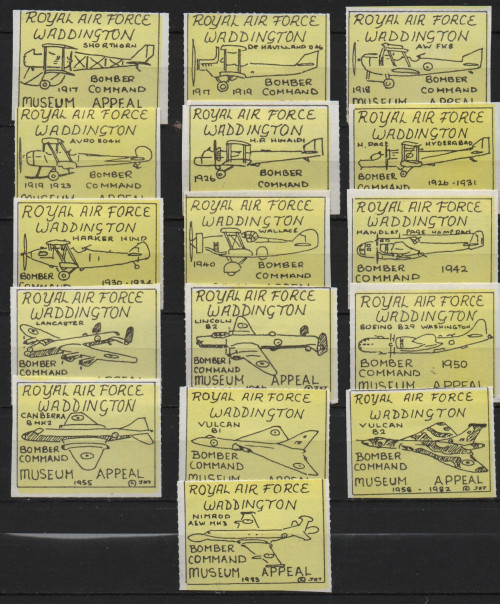 ROYAL AIR FORCE
WADDINGTON
SHORTHORN
1917 BOMBER
COMMAND
MUSEUM APPEAL
ROYAL AIR FORCE
WADDINGTON
DE HAVILLAND
1917 1919 BOMBER
COMMAND
ROYAL AIR FORCE
WADDINGTON
AW FK8
BOMBER
1918 COMMAND
MUSEUM APPEAL
ROYAL AIR FORCE
WADDINGTON
AVRO 504K
BOMBER
1919 1923 COMMAND
MUSEUM APPEAL
ROYAL AIR FORCE
WADDINGTON
H.P. HINAIDI
1926 BOMBER
COMMAND
ROYAL AIR FORCE
WADDINGTON
H. PAGE HYDERABAD
BOMBER
COMMAND 1926-1931
ROYAL AIR FORCE
WADDINGTON
HARKER HIND
BOMBER
COMMAND 1930-1934
ROYAL AIR FORCE
WADDINGTON
WALLACE
1940 BOMBER
COMMAND
ROYAL AIR FORCE
WADDINGTON
HANDLEY PAGE HAMPDAN
BOMBER
COMMAND 1942
ROYAL AIR FORCE
WADDINGTON
LANCASTER
BOMBER
COMMAND
ROYAL AIR FORCE
WADDINGTON
LINCOLN
B2
BOMBER
COMMAND
MUSEUM APPEAL
ROYAL AIR FORCE
WADDINGTON
BOEING B29 WASHINGTON
BOMBER 1950
COMMAND
MUSEUM APPEAL
ROYAL AIR FORCE
WADDINGTON
CANBERRA
B MK2
BOMBER
COMMAND
MUSEUM APPEAL
1955 © JKT
ROYAL AIR FORCE
WADDINGTON
VULCAN
B1
BOMBER
COMMAND
MUSEUM APPEAL
ROYAL AIR FORCE
WADDINGTON
VULCAN
B2
BOMBER
COMMAND
MUSEUM APPEAL
1958 - 1982 © JKT
ROYAL AIR FORCE
WADDINGTON
NIMROD
AEW MK3
BOMBER
COMMAND
MUSEUM APPEAL
1983 © JKT